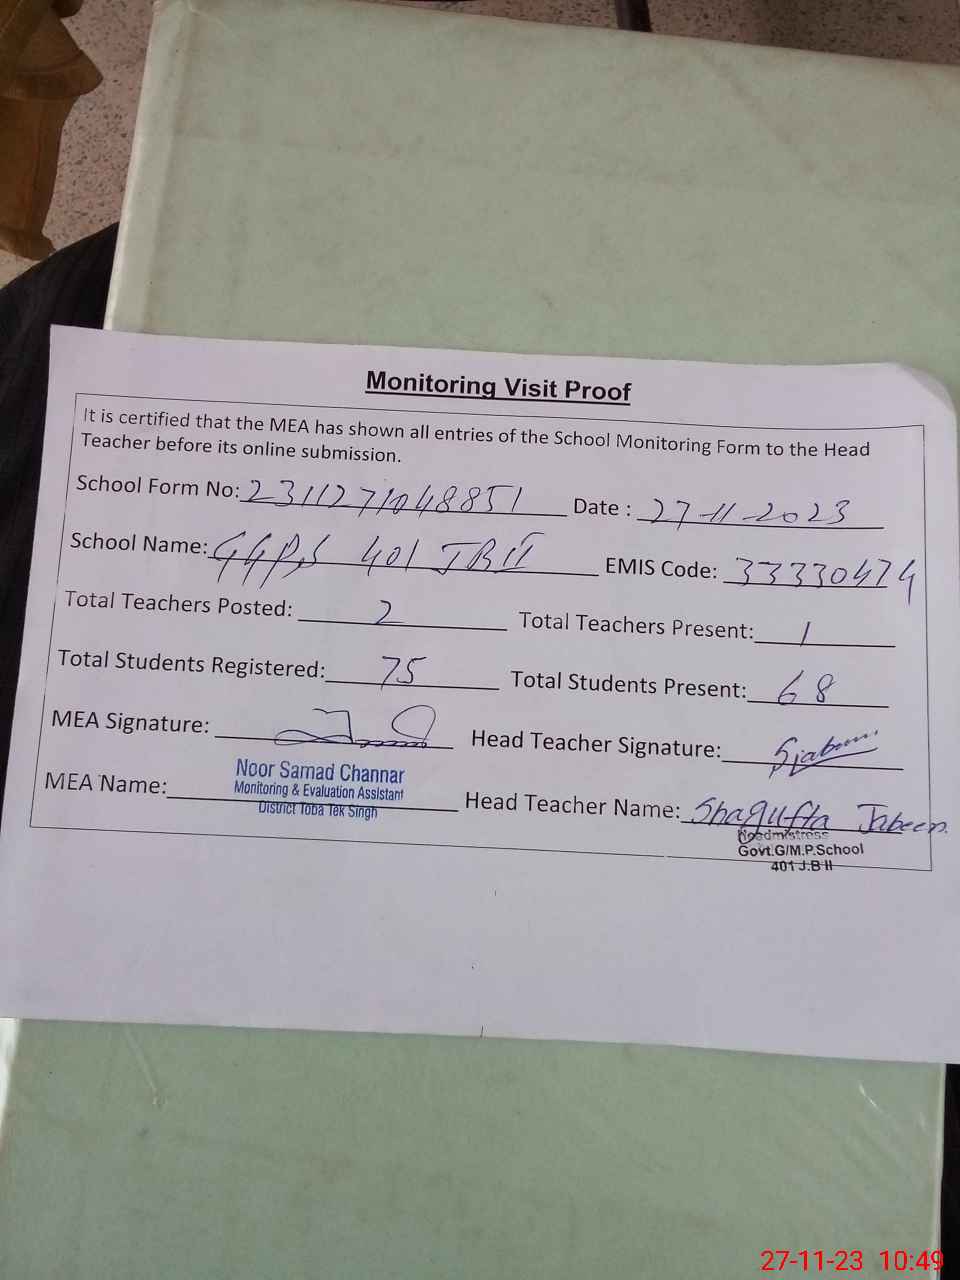 Monitoring Visit Proof
It is certified that the MEA has shown all entries of the School Monitoring Form to the Head
Teacher before its online submission.
School Form No: 2311271048851 Date : 27-11-2023
School Name: GGPS 401 JB II EMIS Code: 33330474
Total Teachers Posted: 2 Total Teachers Present: 1
Total Students Registered: 75 Total Students Present: 68
MEA Signature: Head Teacher Signature: Sjabeen
MEA Name: Noor Samad Channar Head Teacher Name: Shagufta Jabeen
Monitoring & Evaluation Assistant
District Toba Tek Singh
Headmistress
Govt.G/M.P.School
401 J.B II
27-11-23 10:49